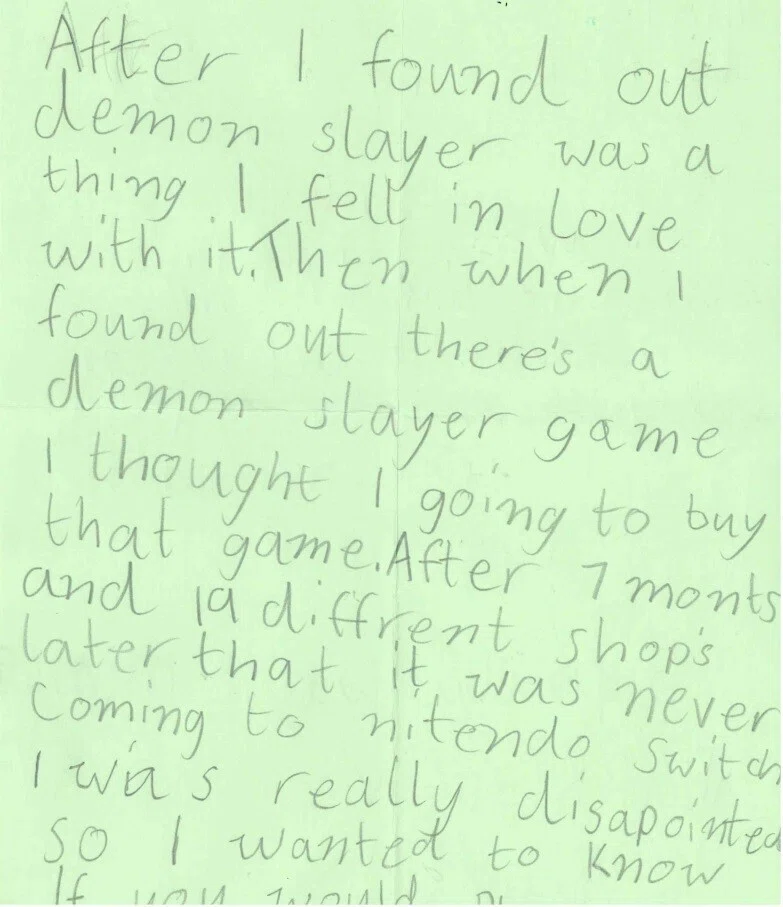 After I found out
demon slayer was a
thing I fell in love
with it.Then when I
found out there's a
demon slayer game
I thought I going to buy
that game.After 7 monts
and 19 diffrent shop's
later that it was never
Coming to nitendo switch
I was really disapointed
so I wanted to know
If you would